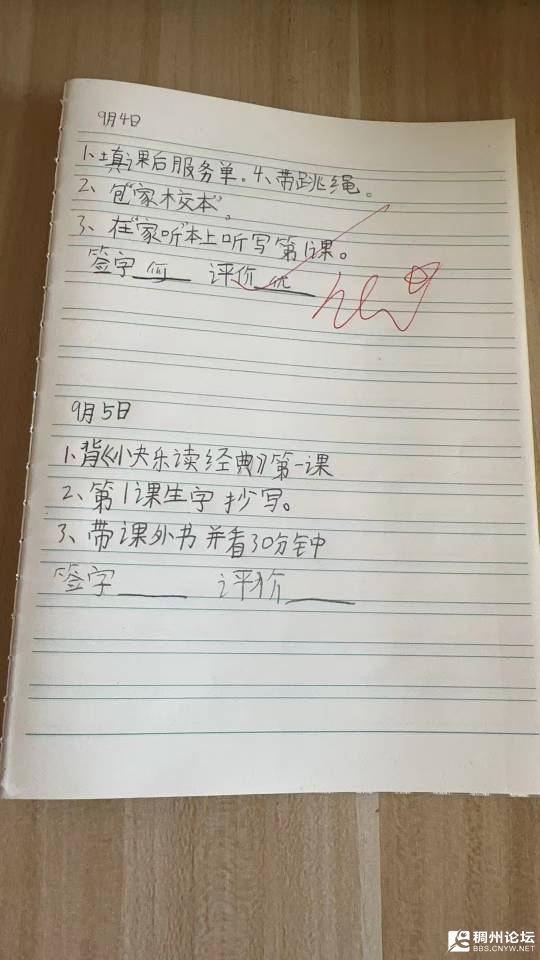 9月4日
1、填课后服务单. 4、带跳绳。
2、包"家校本"。
3、在"家听"本上听写第1课。
签字 评价 优
9月5日
1.背《小快乐读经典》第一课
2、第1课生字抄写。
3、带课外书并看30分钟
签字 评价
稠州论坛
BBS.CNYW.NET